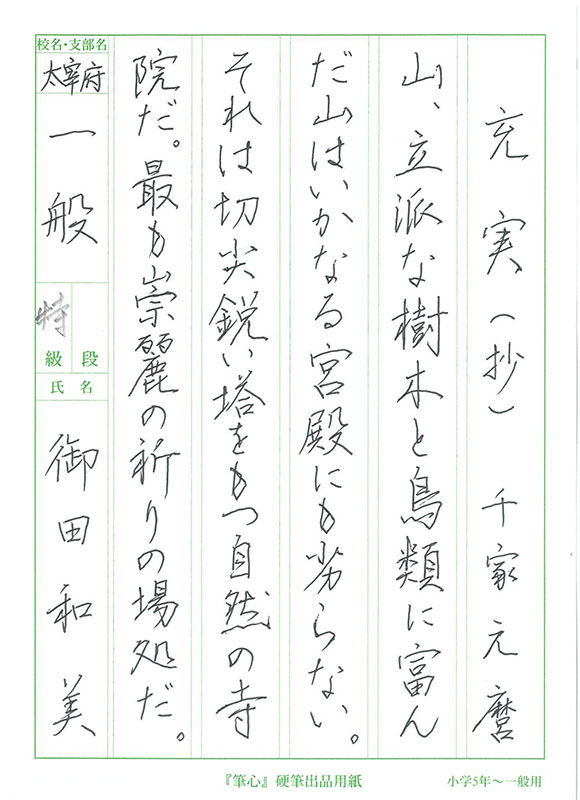 充実(抄) 千家元麿
山、立派な樹木と鳥類に富ん
だ山はいかなる宮殿にも劣らない。
それは切尖鋭い塔をもつ自然の寺
院だ。最も崇麗の祈りの場処だ。
校名・支部名
太宰府
一般
特
級 段
氏名
御田和美
『筆心』硬筆出品用紙
小学5年〜一般用